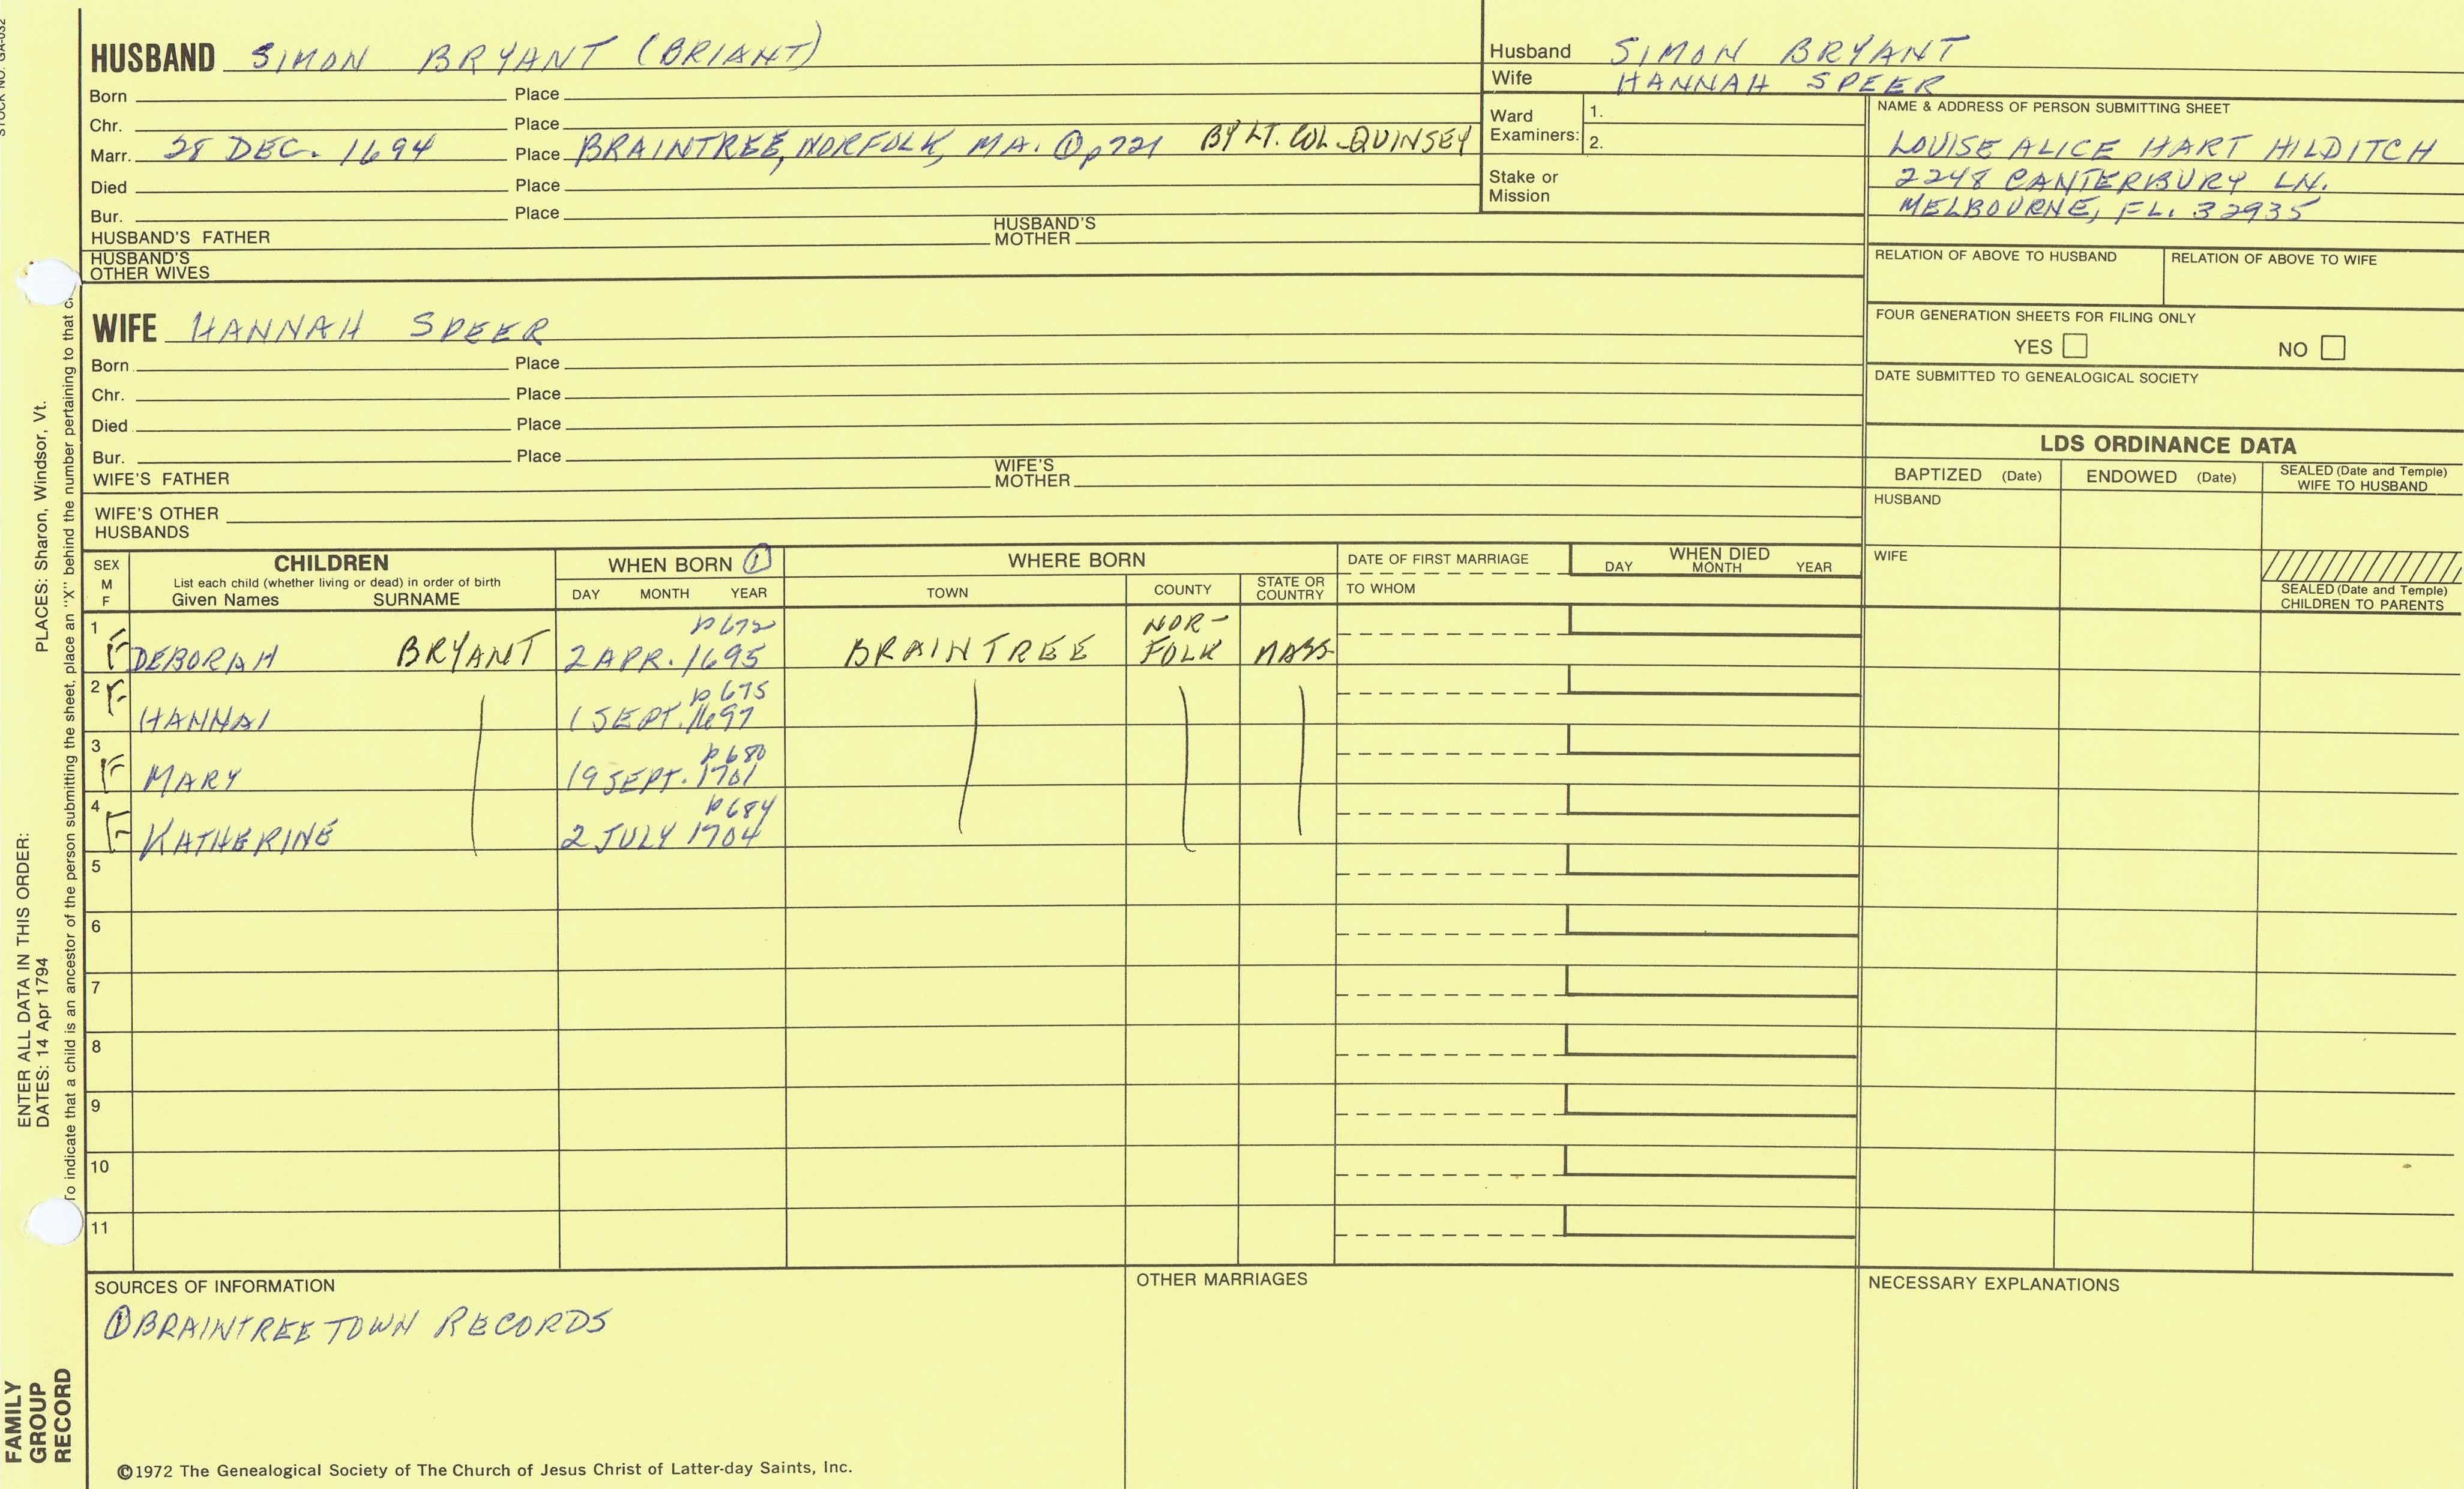 STOCK NO. GA-032
HUSBAND SIMON BRYANT (BRIANT)
Born Place
Chr. Place
Marr. 28 DEC. 1694 Place BRAINTREE, NORFOLK, MA. ① p721 BY LT. COL. QUINSEY
Died Place
Bur. Place
HUSBAND'S FATHER HUSBAND'S MOTHER
HUSBAND'S OTHER WIVES
Husband SIMON BRYANT
Wife HANNAH SPEER
Ward Examiners: 1.
2.
Stake or Mission
NAME & ADDRESS OF PERSON SUBMITTING SHEET
LOUISE ALICE HART HILDITCH
2248 CANTERBURY LN.
MELBOURNE, FL. 32935
RELATION OF ABOVE TO HUSBAND RELATION OF ABOVE TO WIFE
FOUR GENERATION SHEETS FOR FILING ONLY
YES NO
DATE SUBMITTED TO GENEALOGICAL SOCIETY
WIFE HANNAH SPEER
Born Place
Chr. Place
Died Place
Bur. Place
WIFE'S FATHER WIFE'S MOTHER
WIFE'S OTHER HUSBANDS
LDS ORDINANCE DATA
BAPTIZED (Date) ENDOWED (Date) SEALED (Date and Temple) WIFE TO HUSBAND
HUSBAND
WIFE
SEALED (Date and Temple) CHILDREN TO PARENTS
SEX M F
CHILDREN
List each child (whether living or dead) in order of birth
Given Names SURNAME
WHEN BORN ①
DAY MONTH YEAR
WHERE BORN
TOWN COUNTY STATE OR COUNTRY
DATE OF FIRST MARRIAGE
TO WHOM
WHEN DIED
DAY MONTH YEAR
1 p672 NOR-
F DEBORAH BRYANT 2 APR. 1695 BRAINTREE FOLK MASS
2 F p675
HANNAH 1 SEPT. 1697
3 p680
F MARY 19 SEPT. 1701
4 p684
F KATHERINE 2 JULY 1704
5
6
7
8
9
10
11
SOURCES OF INFORMATION
① BRAINTREE TOWN RECORDS
OTHER MARRIAGES
NECESSARY EXPLANATIONS
©1972 The Genealogical Society of The Church of Jesus Christ of Latter-day Saints, Inc.
FAMILY GROUP RECORD
ENTER ALL DATA IN THIS ORDER:
DATES: 14 Apr 1794 PLACES: Sharon, Windsor, Vt.
To indicate that a child is an ancestor of the person submitting the sheet, place an "X" behind the number pertaining to that